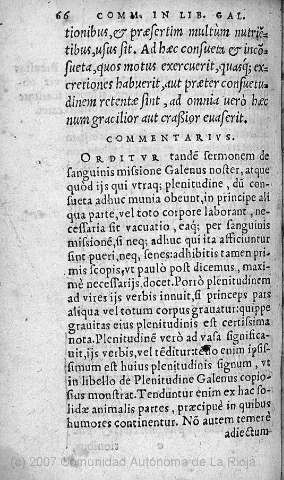 66 COMM. IN LIB. GAL.
tionibus, & præsertim multùm nutriẽ-
tibus, usus sit. Ad hæc consueta, & incõ-
sueta, quos motus exercuerit, quasq; ex-
cretiones habuerit, aut præter consuetu-
dinem retentæ sint, ad omnia verò hæc
num gracilior aut crassior evaserit.
COMMENTARIVS.
ORDITVR tandẽ sermonem de
sanguinis missione Galenus noster, atque
quòd ijs qui vtraq; plenitudine, dũ con-
sueta adhuc munia obeunt, in principe ali
qua parte, vel toto corpore laborant, ne-
cessaria sit vacuatio, eaq; per sanguinis
missionẽ, si neq; adhuc qui ita afficiuntur
sint pueri, neq, senes: adhibitis tamen pri-
mis scopis, vt paulò post dicemus, maxi-
mè necessarijs, docet. Porrò plenitudinem
ad vires ijs verbis innuit, si princeps pars
aliqua vel totum corpus grauatur: quippe
grauitas eius plenitudinis est certissima
nota. Plenitudinẽ verò ad vasa significa-
uit, ijs verbis, vel tẽditur: tẽsio enim ipsis-
simum est huius plenitudinis signum, vt
in libello de Plenitudine Galenus copio-
sius monstrat. Tenduntur enim ex hac so-
lidæ animalis partes, præcipuè in quibus
humores continentur. Nõ autem temerè
adiectum
(c) 2007 Comunidad Autónoma de La Rioja